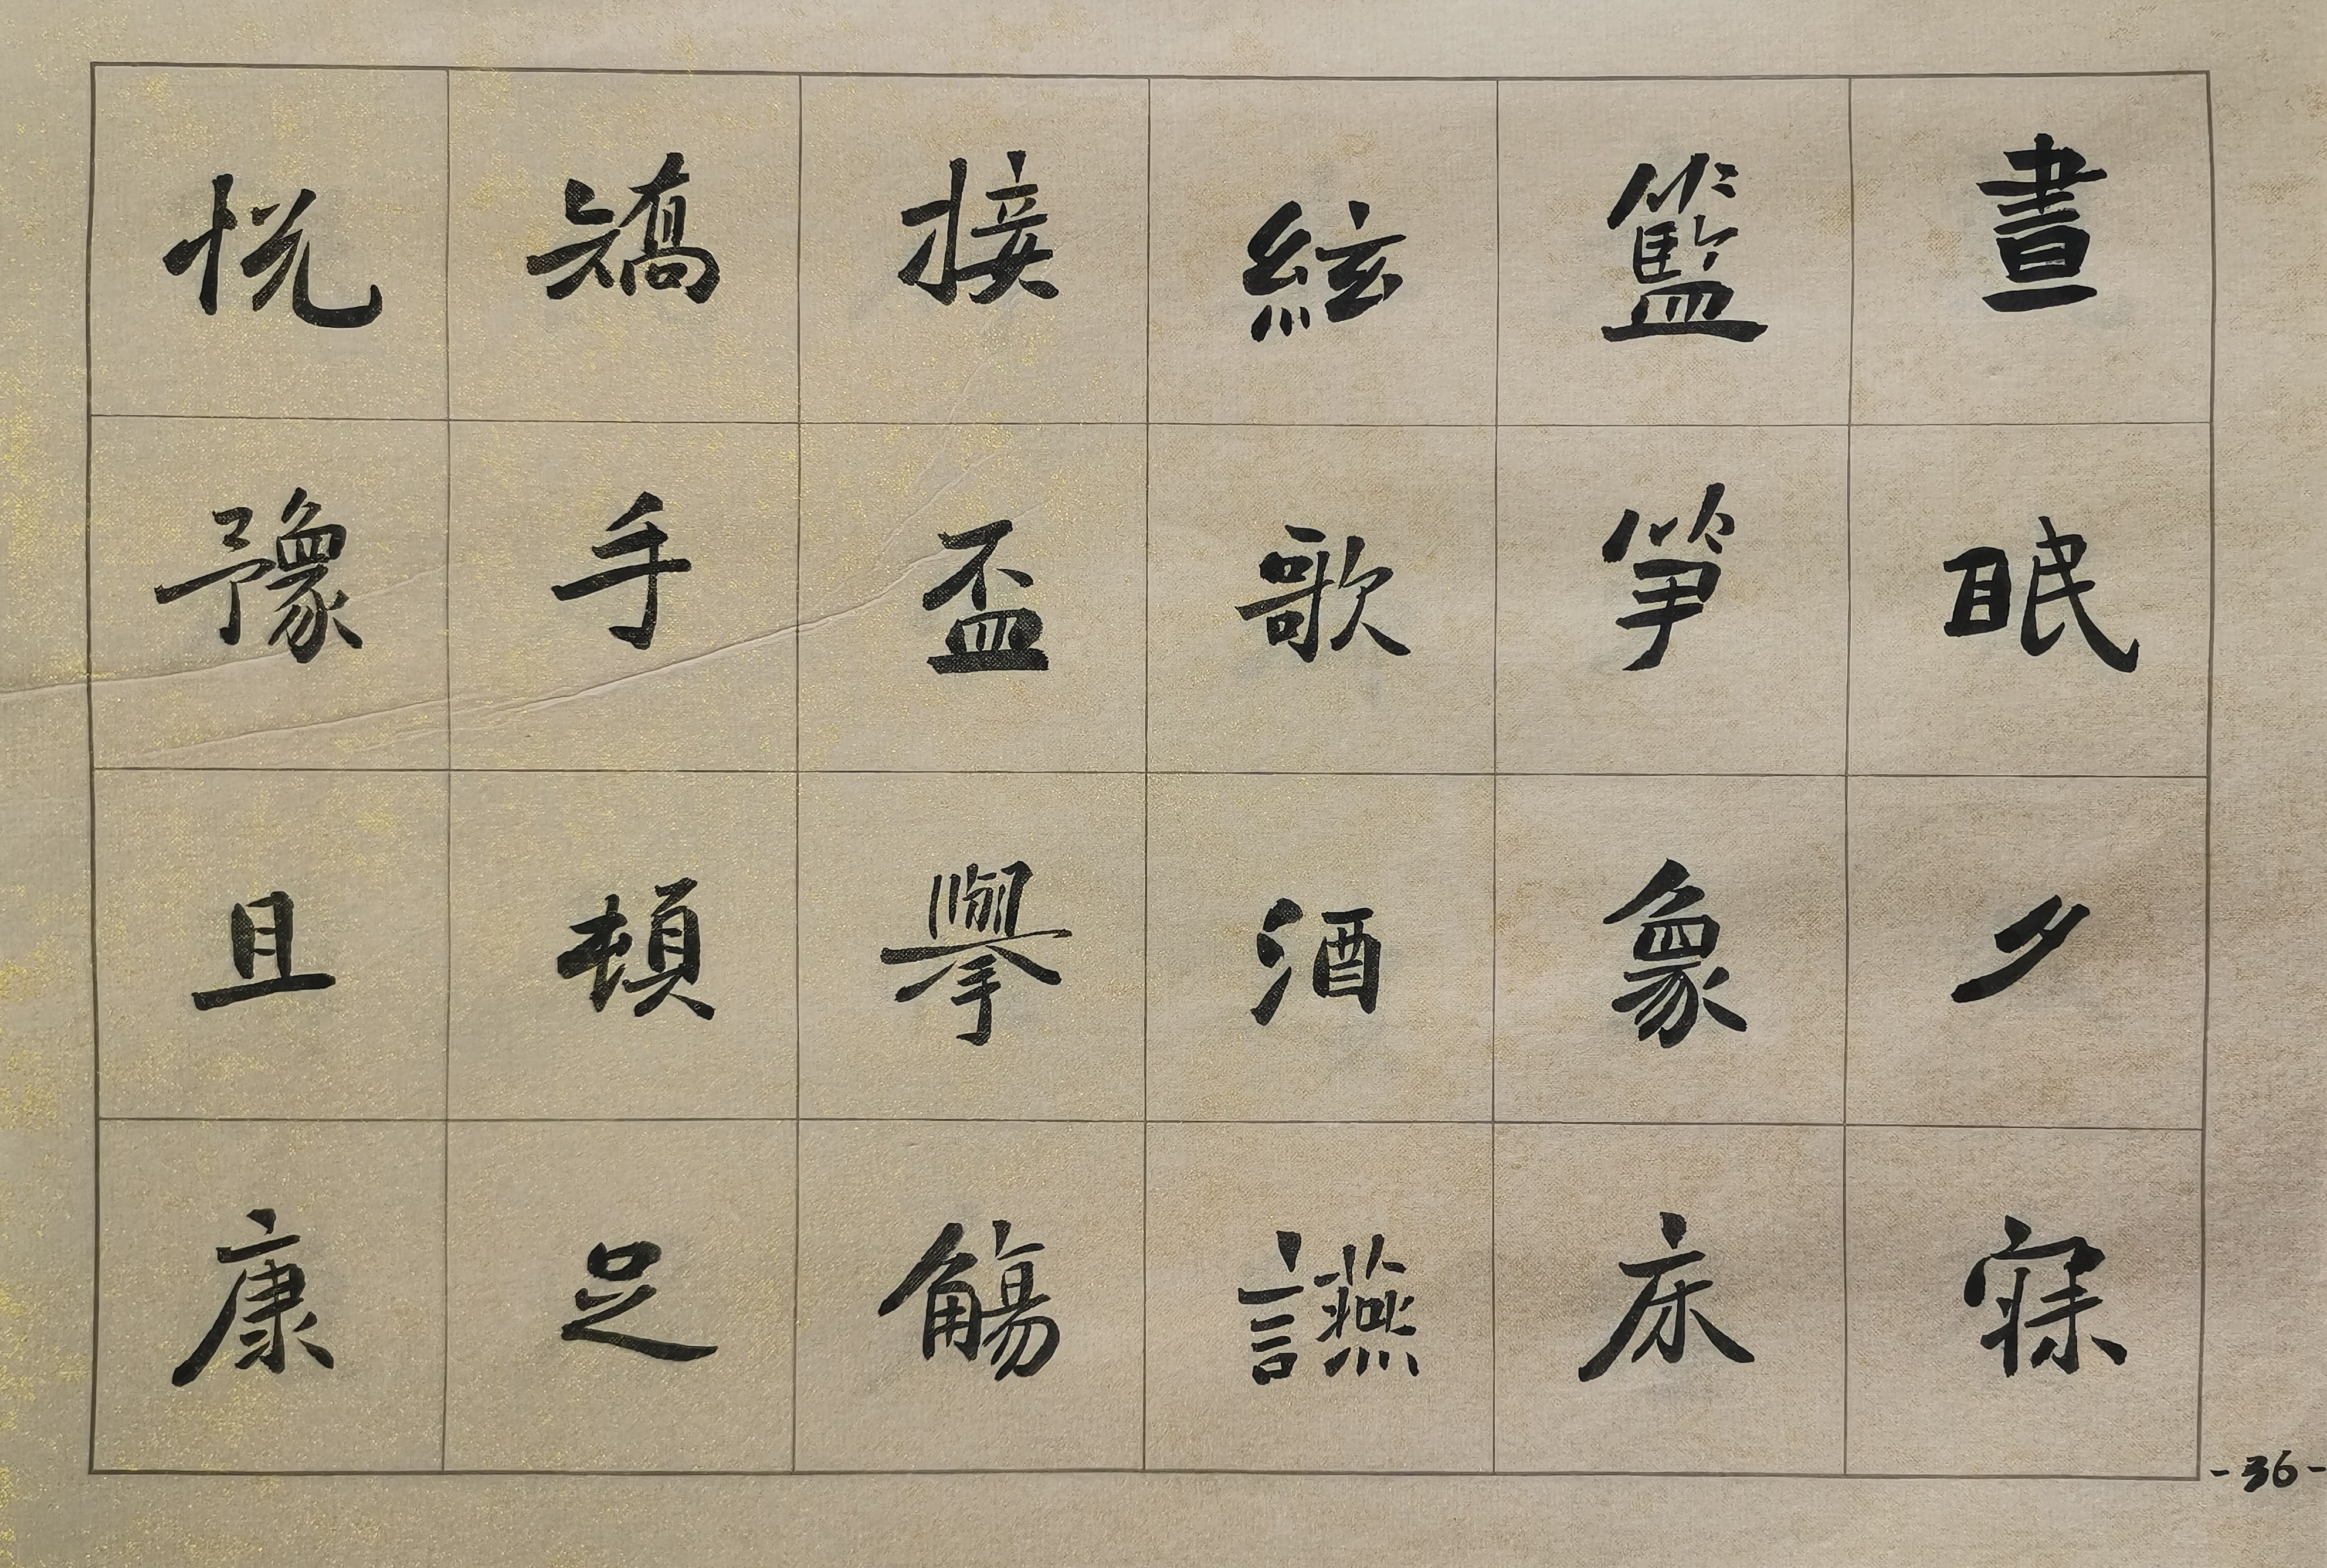 晝眠夕寐
籃笋象床
絃歌酒讌
接盃擧觴
矯手頓足
悦豫且康
-36-